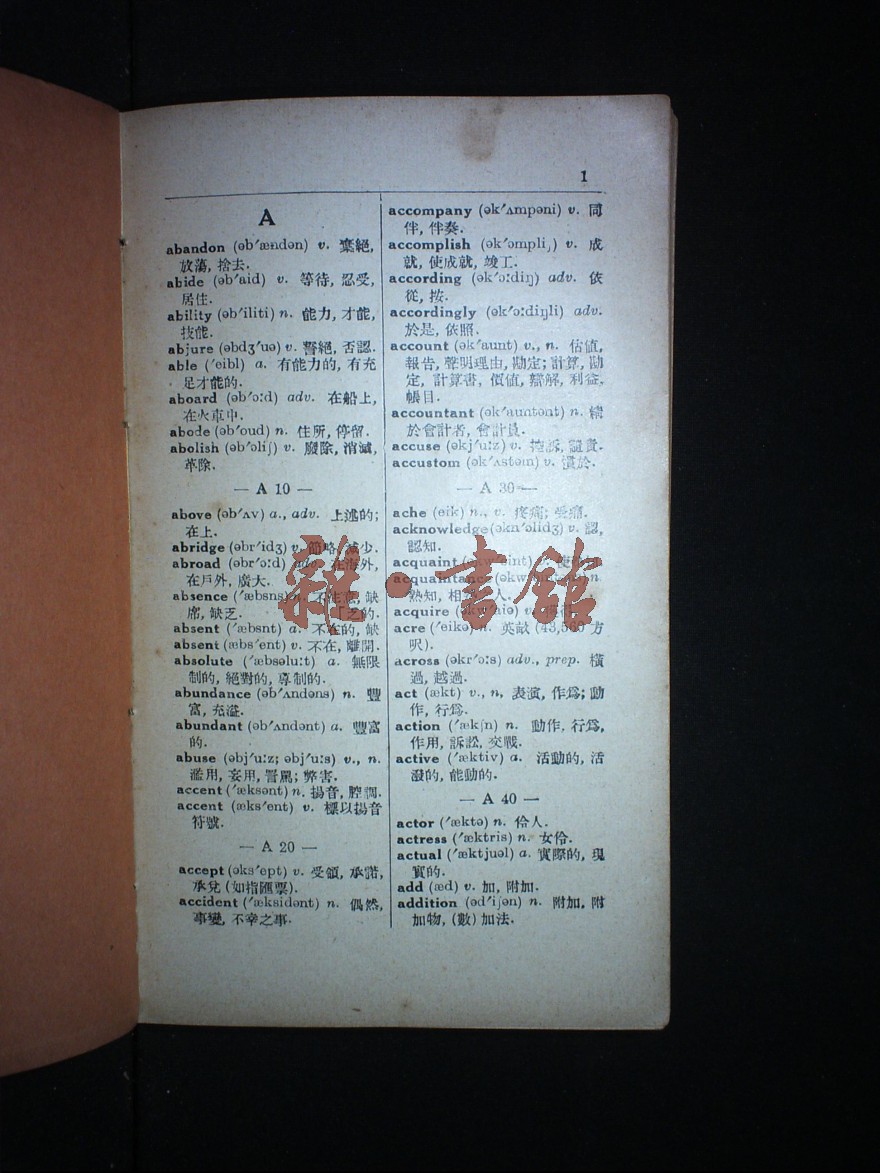 1
A
abandon (əb'ændən) v. 棄絕,
放蕩, 捨去.
abide (əb'aid) v. 等待, 忍受,
居住.
ability (əb'iliti) n. 能力, 才能,
技能.
abjure (əbdʒ'uə) v. 誓絕, 否認.
able ('eibl) a. 有能力的, 有充
足才能的.
aboard (əb'ɔ:d) adv. 在船上,
在火車中.
abode (əb'oud) n. 住所, 停留.
abolish (əb'ɔliʃ) v. 廢除, 消滅,
革除.
— A 10 —
above (əb'ʌv) a., adv. 上述的;
在上.
abridge (əbr'idʒ) v. 節略, 減少.
abroad (əbr'ɔ:d) adv. 在海外,
在戶外, 廣大.
absence ('æbsns) n. 不注意, 缺
席, 缺乏. 「乏的.
absent ('æbsnt) a. 不在的, 缺
absent (æbs'ent) v. 不在, 離開.
absolute ('æbsəlu:t) a. 無限
制的, 絕對的, 專制的.
abundance (əb'ʌndəns) n. 豐
富, 充溢.
abundant (əb'ʌndənt) a. 豐富
的.
abuse (əbj'u:z; əbj'u:s) v., n.
濫用, 妄用, 詈罵; 弊害.
accent ('æksənt) n. 揚音, 腔調.
accent (æks'ent) v. 標以揚音
符號.
— A 20 —
accept (əks'ept) v. 受領, 承諾,
承兌 (如指匯票).
accident ('æksidənt) n. 偶然,
事變, 不幸之事.
accompany (ək'ʌmpəni) v. 同
伴, 伴奏.
accomplish (ək'ɔmpliʃ) v. 成
就, 使成就, 竣工.
according (ək'ɔ:diŋ) adv. 依
從, 按.
accordingly (ək'ɔ:diŋli) adv.
於是, 依照.
account (ək'aunt) v., n. 估値,
報告, 聲明理由, 勘定; 計算, 勘
定, 計算書, 價値, 辯解, 利益,
帳目.
accountant (ək'auntənt) n. 精
於會計者, 會計員.
accuse (əkj'u:z) v. 控訴, 譴責.
accustom (ək'ʌstəm) v. 慣於.
— A 30 —
ache (eik) n., v. 疼痛; 受痛.
acknowledge (əkn'ɔlidʒ) v. 認,
認知.
acquaint (əkw'eint) v. 使
acquaintance n.
熟知, 相 人.
acquire (əkw'aiə) v.
acre ('eikə) n. 英畝 (43,560 方
呎).
across (əkr'ɔ:s) adv., prep. 橫
過, 越過.
act (ækt) v., n, 表演, 作爲; 動
作, 行爲.
action ('ækʃn) n. 動作, 行爲,
作用, 訴訟, 交戰.
active ('æktiv) a. 活動的, 活
潑的, 能動的.
— A 40 —
actor ('æktə) n. 伶人.
actress ('æktris) n. 女伶.
actual ('æktjuəl) a. 實際的, 現
實的.
add (æd) v. 加, 附加.
addition (əd'iʃən) n. 附加, 附
加物, (數) 加法.
雜·書館